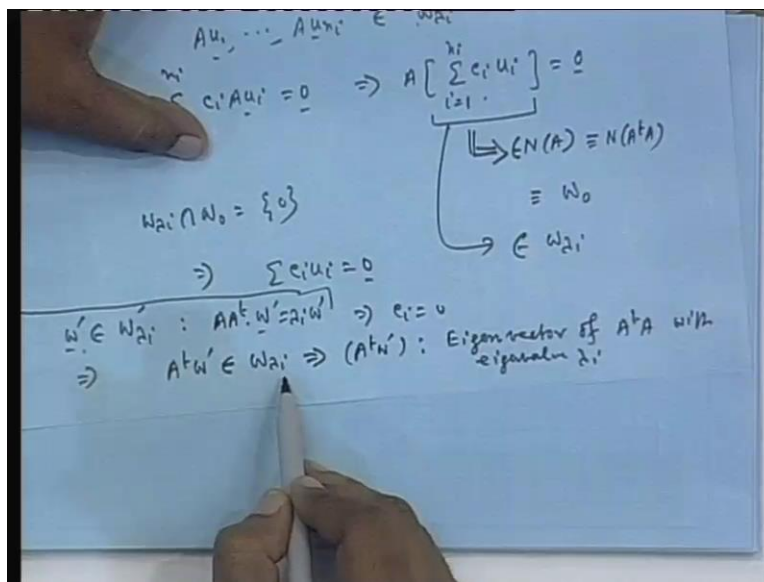 Au₁, ⋯, Auₙᵢ ∈ Wλᵢ
Σⁿⁱ cᵢAuᵢ = 0 ⇒ A[Σᵢ₌₁ⁿⁱ cᵢuᵢ] = 0
⇒ ∈ N(A) ≡ N(AᵗA)
≡ W₀
Wλᵢ ∩ W₀ = {0}
→ ∈ Wλᵢ
⇒ Σcᵢuᵢ = 0
w' ∈ W'λᵢ : AAᵗ·w' = λᵢw' ⇒ cᵢ = 0
⇒ Aᵗw' ∈ Wλᵢ ⇒ (Aᵗw') : Eigenvector of AᵗA with
eigenvalue λᵢ